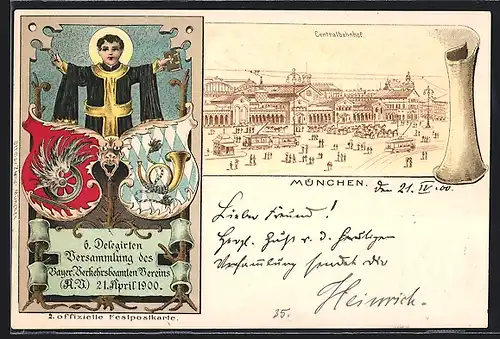 Centralbahnhof
MÜNCHEN.
den 21. IV. 00.
Lieber Freund!
Herzl. Gruß v. d. heutigen
Versammlung sendet dir
Heinrich.
35.
6. Delegirten
Versammlung des
Bayer. Verkehrsbeamten Vereins
(A.V.) 21. April 1900.
2. offizielle Festpostkarte.